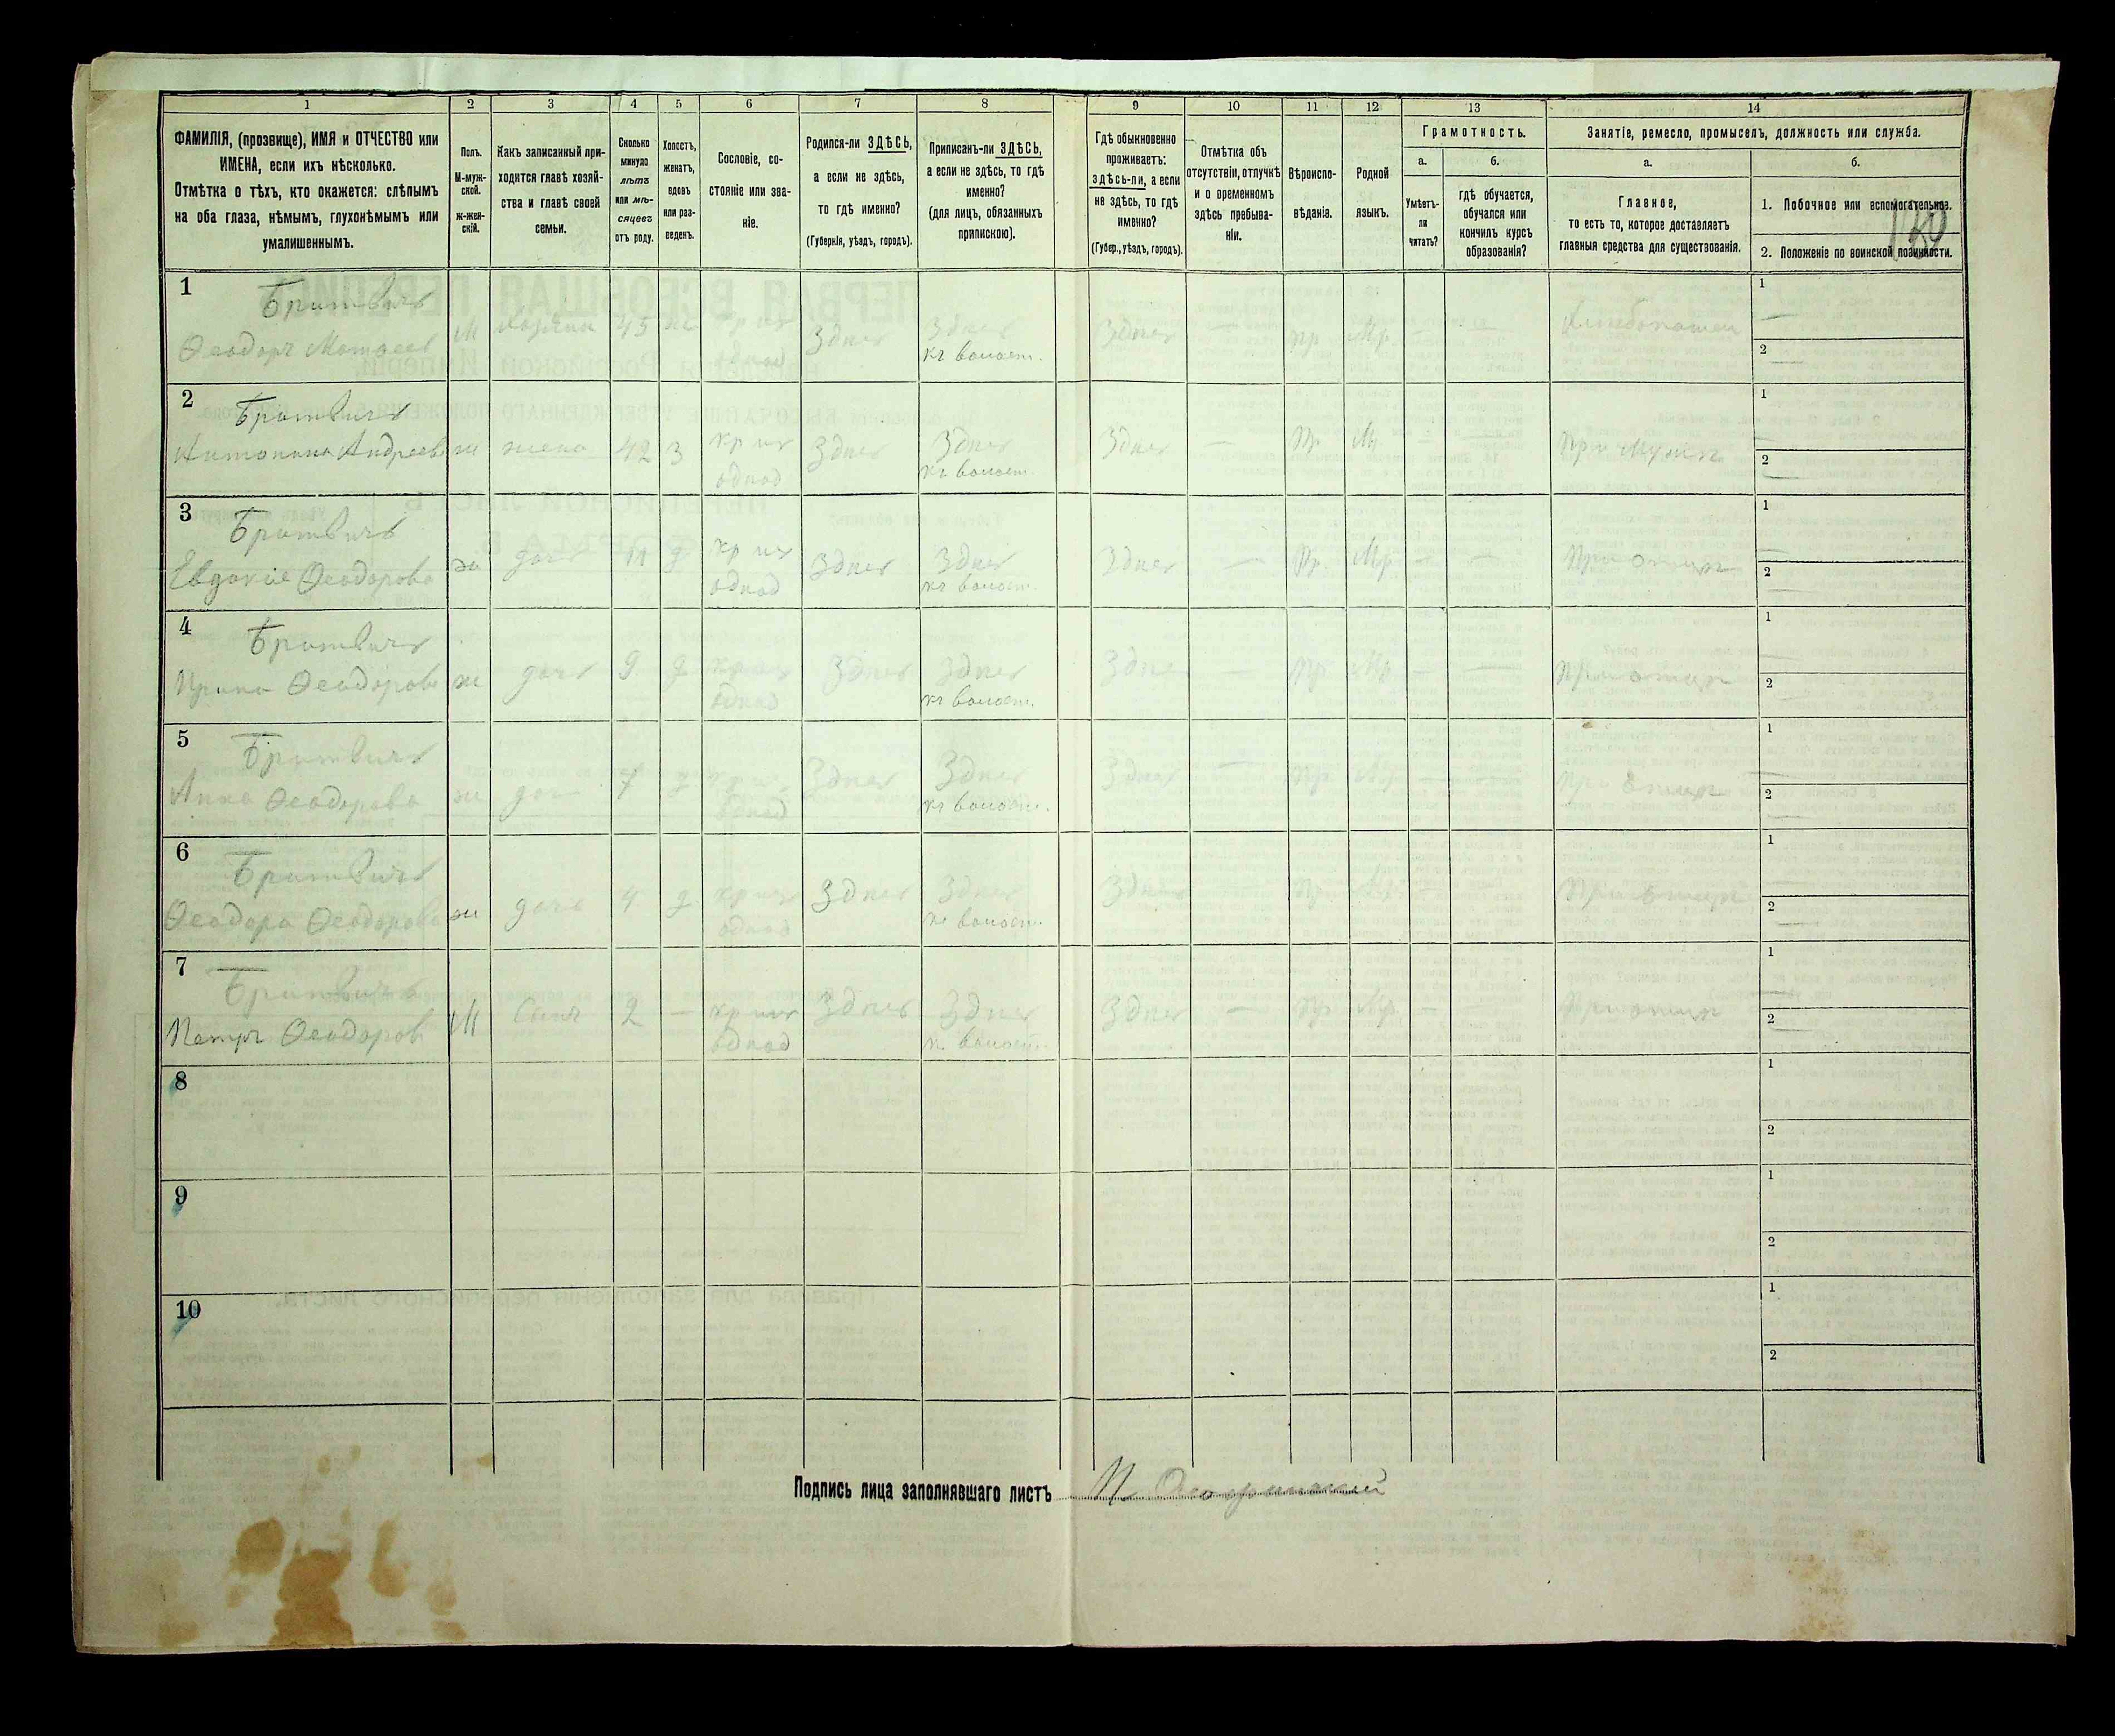 1 2 3 4 5 6 7 8 9 10 11 12 13 14
ФАМИЛІЯ, (прозвище), ИМЯ и ОТЧЕСТВО или
ИМЕНА, если ихъ нѣсколько.
Отмѣтка о тѣхъ, кто окажется: слѣпымъ
на оба глаза, нѣмымъ, глухонѣмымъ или
умалишеннымъ.
Полъ.
М-муж-
ской.
ж-жен-
скій.
Какъ записанный при-
ходится главѣ хозяй-
ства и главѣ своей
семьи.
Сколько
минуло
лѣтъ
или мѣ-
сяцевъ
отъ роду.
Холостъ,
женатъ,
вдовъ
или раз-
веденъ.
Сословіе, со-
стояніе или зва-
ніе.
Родился-ли ЗДѢСЬ,
а если не здѣсь,
то гдѣ именно?
(Губернія, уѣздъ, городъ).
Приписанъ-ли ЗДѢСЬ,
а если не здѣсь, то гдѣ
именно?
(для лицъ, обязанныхъ
припискою).
Гдѣ обыкновенно
проживаетъ:
здѣсь-ли, а если
не здѣсь, то гдѣ
именно?
(Губер., уѣздъ, городъ).
Отмѣтка объ
отсутствіи, отлучкѣ
и о временномъ
здѣсь пребыва-
ніи.
Вѣроиспо-
вѣданіе.
Родной
языкъ.
Грамотность.
а.
Умѣетъ-
ли
читать?
б.
гдѣ обучается,
обучался или
кончилъ курсъ
образованія?
Занятіе, ремесло, промыселъ, должность или служба.
а.
Главное,
то есть то, которое доставляетъ
главныя средства для существованія.
б.
1. Побочное или вспомогательное.
2. Положеніе по воинской повинности.
1 Бритвичъ
Ѳеодоръ Матѳеев М Хозяинъ 45 ж кр изъ Здесь Здесь Здесь — пр Мр. — — Хлебопашец
однод къ волост.
1
2
2 Бритвичъ
Антонина Андреев ж жена 42 З кр изъ Здесь Здесь Здесь — Пр. Мр. — — При мужѣ
однод къ волост.
1
2
3 Бритвичъ
Евдокіе Ѳеодорова ж дочь 11 д кр изъ Здесь Здесь Здесь — Пр. Мр — — При отцѣ
однод къ волост.
1
2
4 Бритвичъ
Ирина Ѳеодорова ж дочь 9 д кр изъ Здесь Здесь Здесь — Пр Мр. — — При отцѣ
однод къ волост.
1
2
5 Бритвичъ
Анна Ѳеодорова ж дочь 7 д кр изъ Здесь Здесь Здесь — Пр. Мр. — — При отцѣ
однод къ волост.
1
2
6 Бритвичъ
Ѳеодора Ѳеодорова ж дочь 4 д кр изъ Здесь Здесь Здесь — Пр. Мр. — — При отцѣ
однод къ волост.
1
2
7 Бритвичъ
Петръ Ѳеодоров М Сынъ 2 — кр изъ Здесь Здесь Здесь — Пр Мр. — — При отцѣ
однод къ волост.
1
2
8
1
2
9
1
2
10
1
2
Подпись лица заполнявшаго листъ